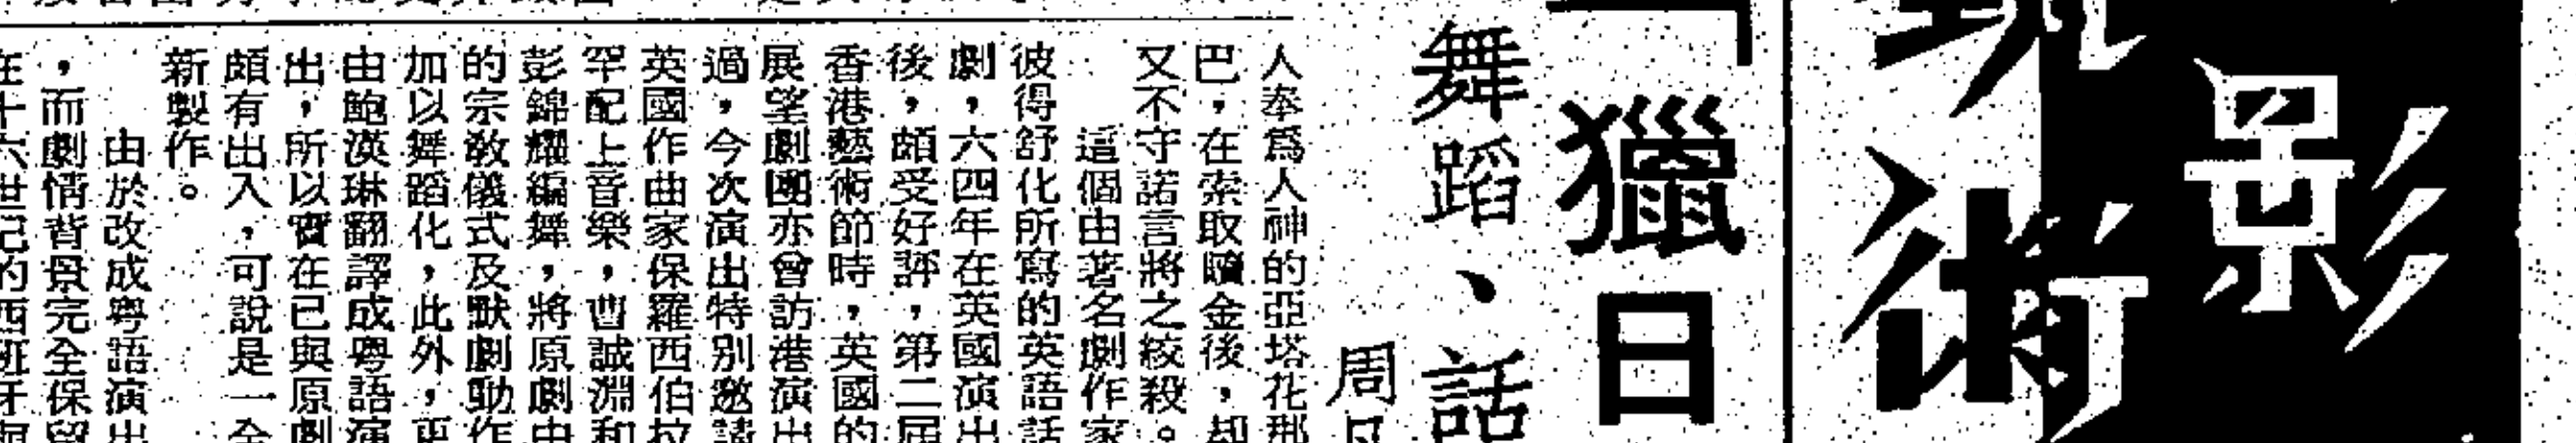 影
術
「獵日
舞蹈、話
周
人奉爲人神的亞塔花那
巴，在索取贖金後，却
又不守諾言將之絞殺。
這個由著名劇作家
彼得舒化所寫的英語話
劇，六四年在英國演出
後，頗受好評，第二屆
香港藝術節時，英國的
展望劇團亦曾訪港演出
過，今次演出特別邀請
英國作曲家保羅西伯拉
罕配上音樂，曹誠淵和
彭錦耀編舞，將原劇中
的宗敎儀式及默劇動作
加以舞蹈化，此外，更
由鮑漢琳翻譯成粤語演
出，所以實在已與原劇
頗有出入，可說是一全
新製作。
由於改成粤語演出
，而劇情背景完全保留
在十六世紀的西班牙